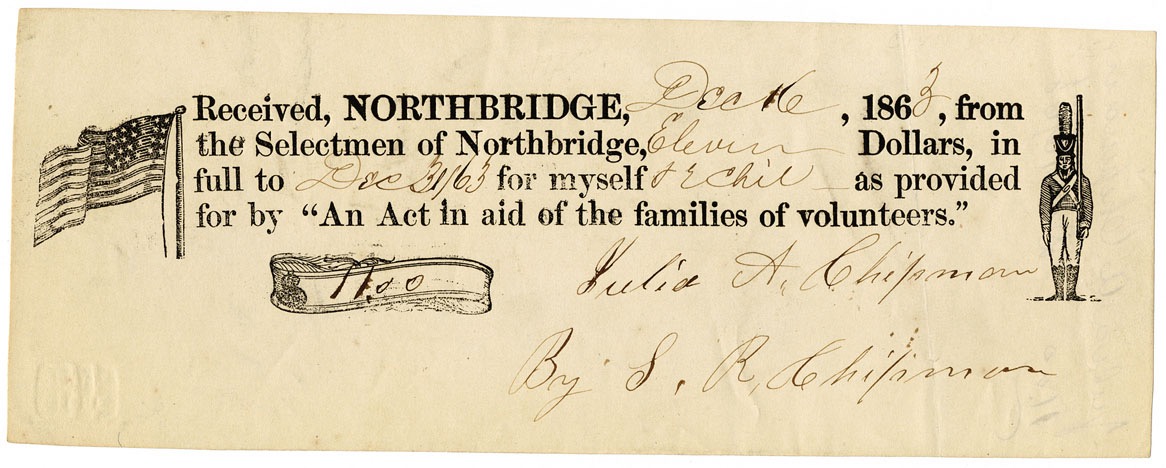 Received, NORTHBRIDGE, Dec 16, 1863, from
the Selectmen of Northbridge, Eleven Dollars, in
full to Dec 31/63 for myself & chil as provided
for by “An Act in aid of the families of volunteers.”
11.00
Julia A. Chipman
By S. R. Chipman